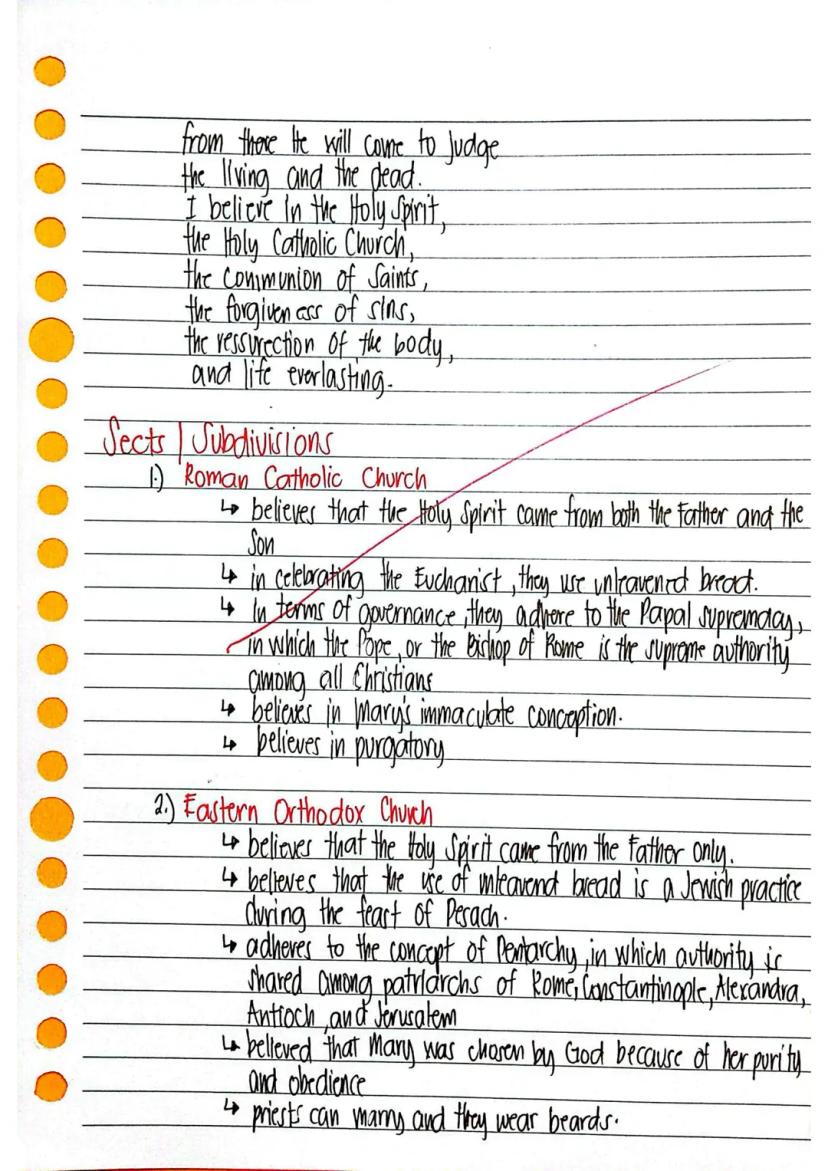 from there He will come to Judge
the living and the dead.
I believe in the Holy Spirit,
the Holy Catholic Church,
the communion of Saints,
the forgiveness of sins,
the ressurection of the body,
and life everlasting.
Sects | Subdivisions
1.) Roman Catholic Church
↳ believes that the Holy Spirit came from both the Father and the
Son
↳ in celebrating the Eucharist, they use unleavened bread.
↳ In terms of governance, they adhere to the Papal supremacy,
in which the Pope, or the Bishop of Rome is the supreme authority
among all Christians
↳ believes in Mary's immaculate conception.
↳ believes in purgatory
2.) Eastern Orthodox Church
↳ believes that the Holy Spirit came from the Father only.
↳ believes that the use of unleavend bread is a Jewish practice
during the feast of Pesach.
↳ adheres to the concept of Pentarchy, in which authority is
shared among patriarchs of Rome, Constantinople, Alexandra,
Antioch, and Jerusalem
↳ believed that Mary was chosen by God because of her purity
and obedience
↳ priests can marry and they wear beards.